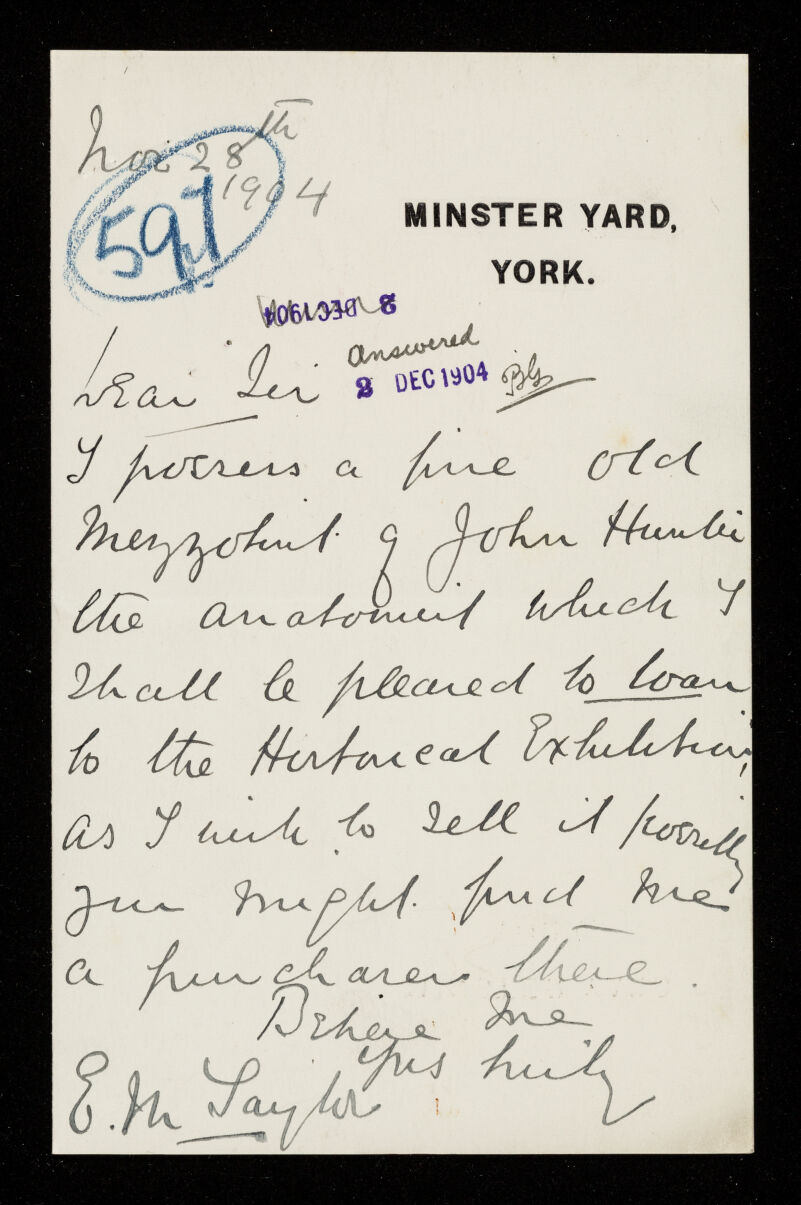 Nov 28th
1904
597
MINSTER YARD,
YORK.
2 DEC 1904
answered
2 DEC 1904
Dear Sir
I possess a fine old
Mezzotint of John Hunter
the anatomist which I
shall be pleased to loan
to the Historical Exhibition,
as I wish to sell it possibly
you might find me
a purchaser there.
Believe me
Yrs truly
E. M Taylor